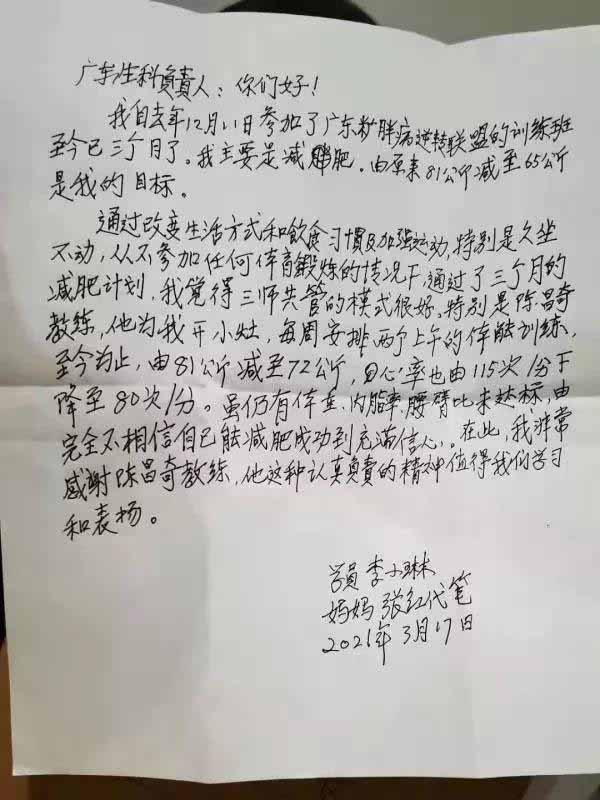 广东生科負責人：你们好！
我自去年12月11日参加了广东糖胖病逆转联盟的训练班
至今已三个月了。我主要是减肥。由原来81公斤减至65公斤
是我的目标。
通过改变生活方式和飲食习慣及加强运动，特别是久坐
不动，从不参加任何体育鍛炼的情况下，通过了三个月的
减肥计划，我觉得三师共管的模式很好，特别是陈昌奇
教练，他为我开小灶，每周安排两个上午的体能训练，
至今为止，由81公斤减至72公斤，心率也由115次/分下
降至80次/分。虽仍有体重、内脂、腰臂比未达标，由
完全不相信自己能减肥成功到充满信人，。在此，我非常
感谢陈昌奇教练，他这种认真負責的精神值得我们学习
和表扬。
学員 李小琳
妈妈 张红代笔
2021年3月17日